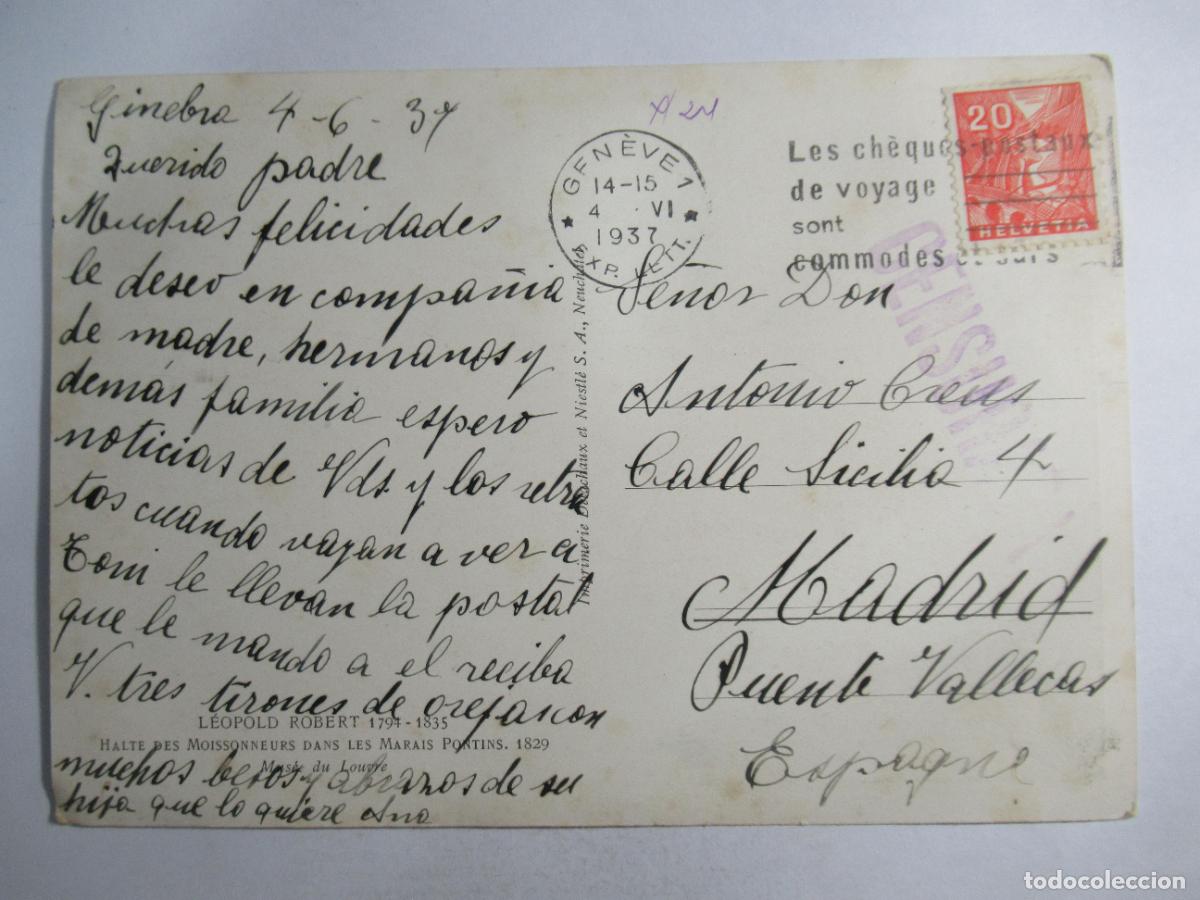 Ginebra 4-6-37
Querido padre
Muchas felicidades
le deseo en compañia
de madre, hermanos y
demás familia espero
noticias de Vds. y los retra
tos cuando vayan a ver a
Toni le llevan la postal
que le mando a el reciba
V. tres tirones de orejas con
muchos besos y abrazos de su
hija que lo quiere Ana
LÉOPOLD ROBERT 1794-1835
HALTE DES MOISSONNEURS DANS LES MARAIS PONTINS. 1829
Musée du Louvre
Imprimerie Delachaux et Niestlé S. A., Neuchâtel
GENÈVE 1
14-15
4 . VI
1937
EXP. LETT.
Les chèques postaux
de voyage
sont
commodes et surs
20
HELVETIA
CENSURA
Señor Don
Antonio Creus
Calle Sicilia 4
Madrid
Puente Vallecas
Espagne
todocoleccion